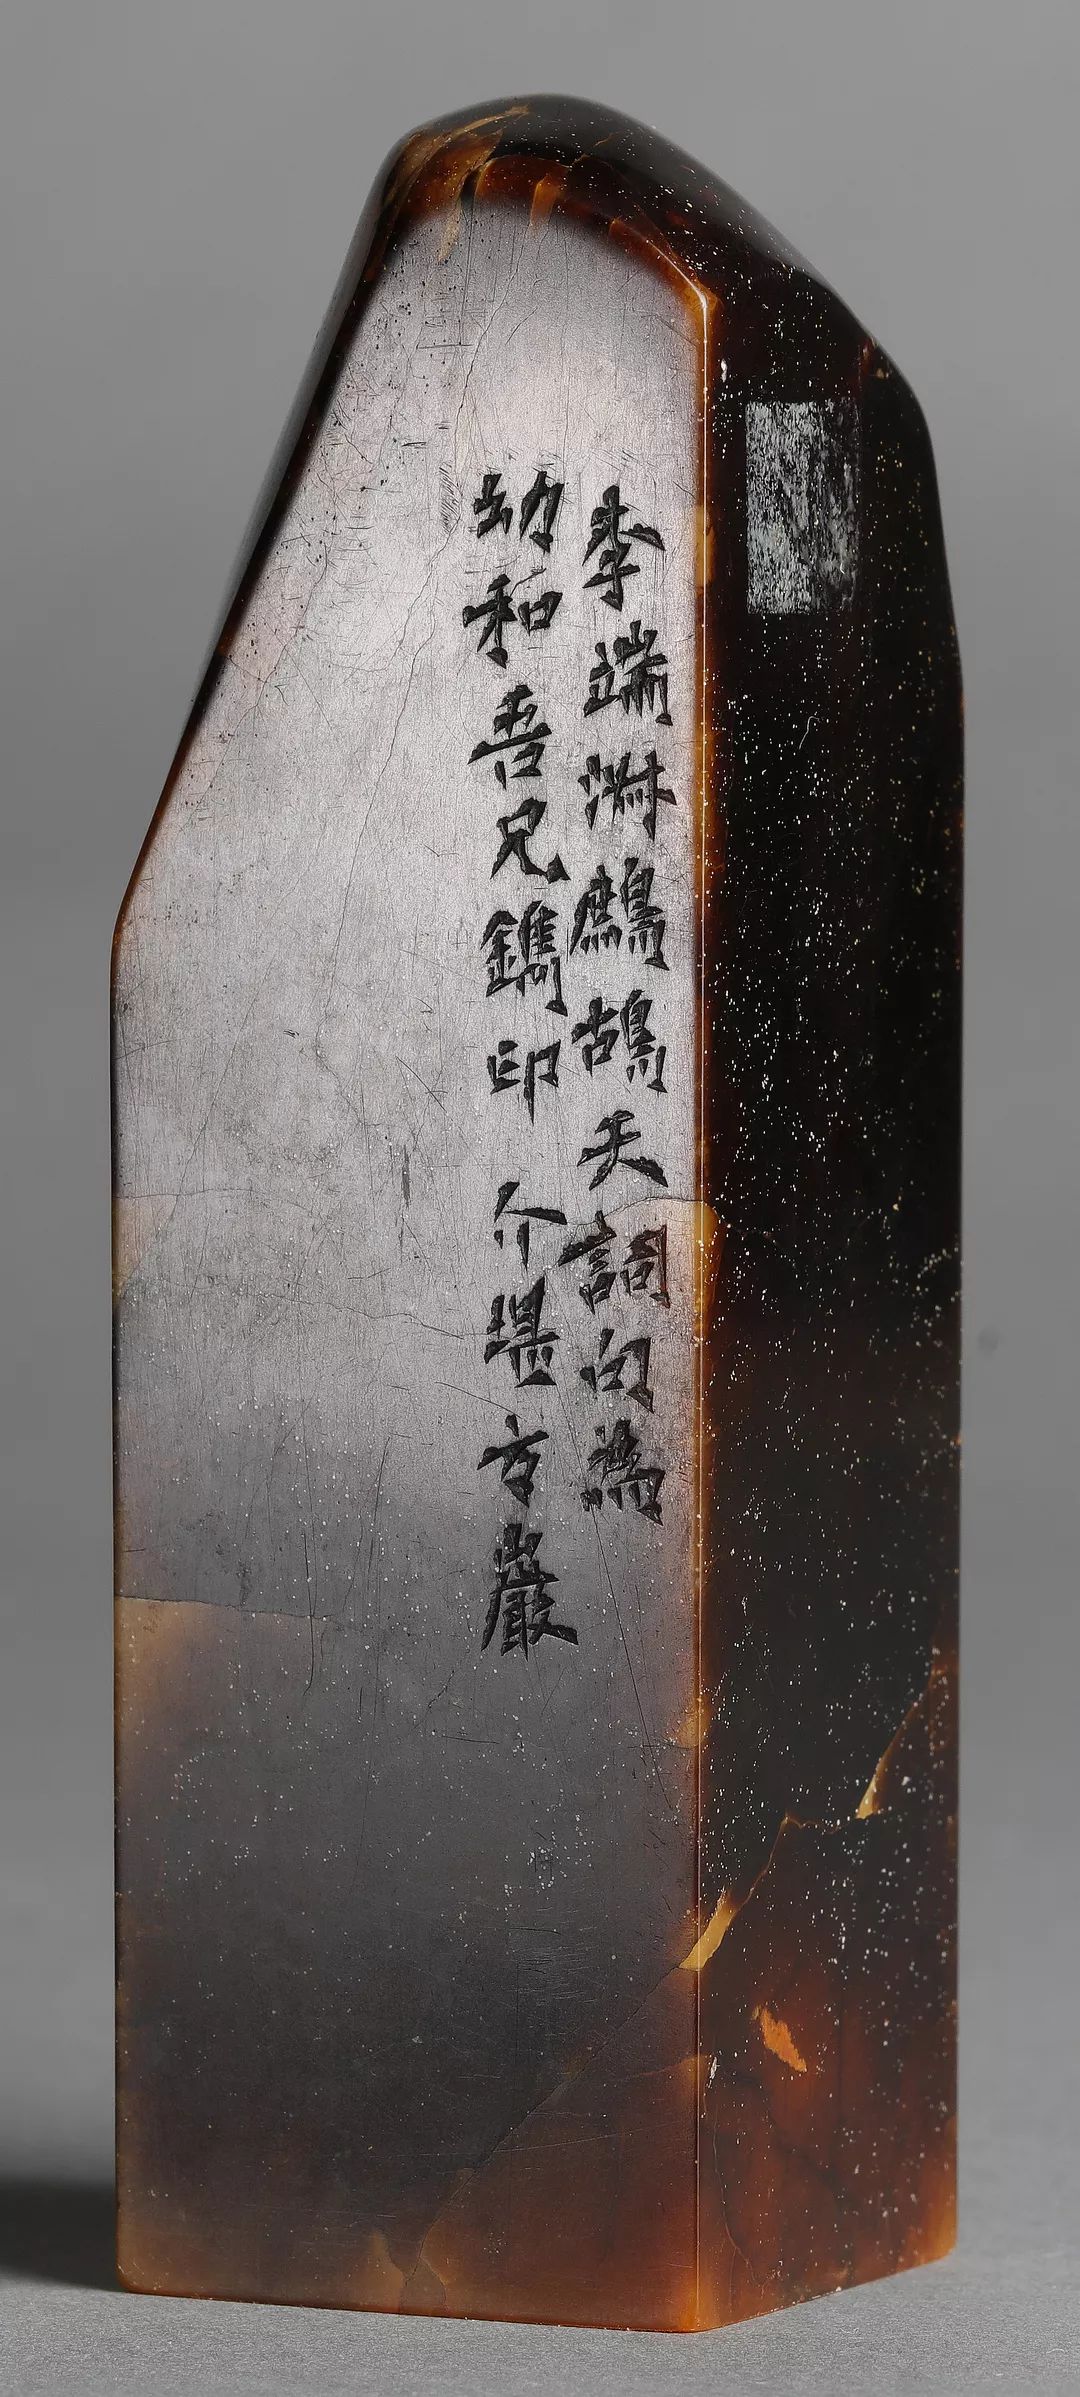 李端淑鷓鴣天詞句為
幼和吾兄鐫印 介堪方巖